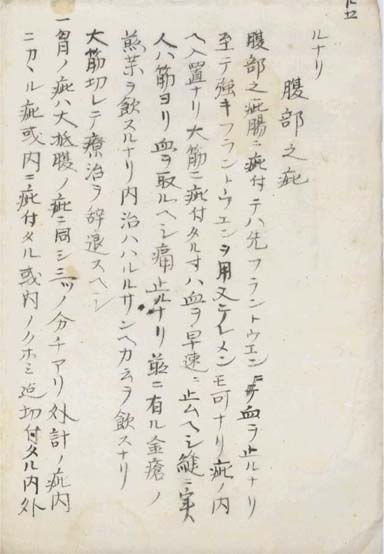 ルナリ
腹部之疵
腹部之疵腸ニ疵付テハ先フラントウエンニテ血ヲ止ルナリ
至テ強キフラントウエンヲ用又テレメンモ可ナリ疵ノ内
ヘ入置ナリ大筋ニ疵付タルオハ血ヲ早速ニ止ムヘシ縫ニ実
人ハ筋ヨリ血ヲ取ルヘシ痛止ルナリ並ニ有ル金瘡ノ
煎薬ヲ飲スルナリ内治ハハルルサンヘカ云ヲ飲スナリ
大筋切レテ療治ヲ辞退スヘシ
一胃ノ疵ハ大抵腹ノ疵ニ同シ三ツノ分チアリ外計ノ疵内
ニカヽル疵或内ニ疵付タル或内ノクホミ迄切付タル内外